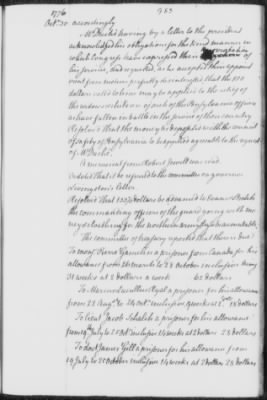 1776 963
Oct. 30 accordingly
Mr Duché having by a letter to the president
acknowledged his obligations for the kind manner in
which Congress have expressed their approbation of
his services, and requested, as he accepted their appoint
ment from motives perfectly disinterested that the 150
dollars voted to him may be applied to the relief of
the widows & children of such of the Pensylvania officers
as have fallen in battle in the service of their country
Resolved That the money be deposited with the council
of safety of Pensylvania to be applied agreeable to the request
of Mr Duché.
A memorial from Robert Jewell was read
Ordered That it be referred to the committee on governor
Livingston's letter.
Resolved That dollars be advanced to
the commanding officer of the guard going with mo
ney & clothing for the northern army he to be accountable
The committee of treasury reported that there is due
To monsr Pierre Gamelin a prisoner from Canada for his
allowance from 26 march to 28 october inclusive being
31 weeks at 2 dollars a week 62 dollars
To a prisoner for his allowance
from 22 Augt to 24 Octr inclusive 9 weeks at 2 Drs 18 dollars
To lieut Jacob Schalch a prisoner for his allowance
from 19th July to 24 Octr inclusive 14 weeks at 2 dollars 28 dollars
To doct James Gill a prisoner for his allowance from
19 July to 24 October inclusive 14 weeks at 2 dollars 28 dollars